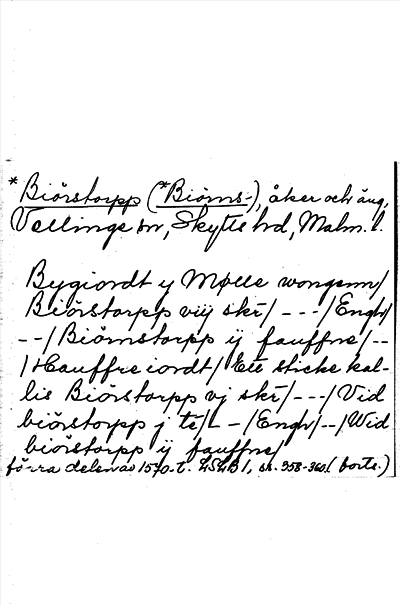 *Biörstorpp (*Biöms-), åker och äng,
Vellinge sn, Skytts hd, Malm. l.
Bygiordt y Mølle wongenn/
Biörstorpp viij skr/ --- /Engh/
--/Biömstorpp ij fauffne/--
/Hauffre iordt/ Ett sticke kal-
lis Biörstorpp vj skr/---/Vid
biörstorpp j te/--/Engh/--/Wid
biörstorpp ij fauffne/
förra delen av 1570-t. LSLB 1, s. 358-360. (forts.)